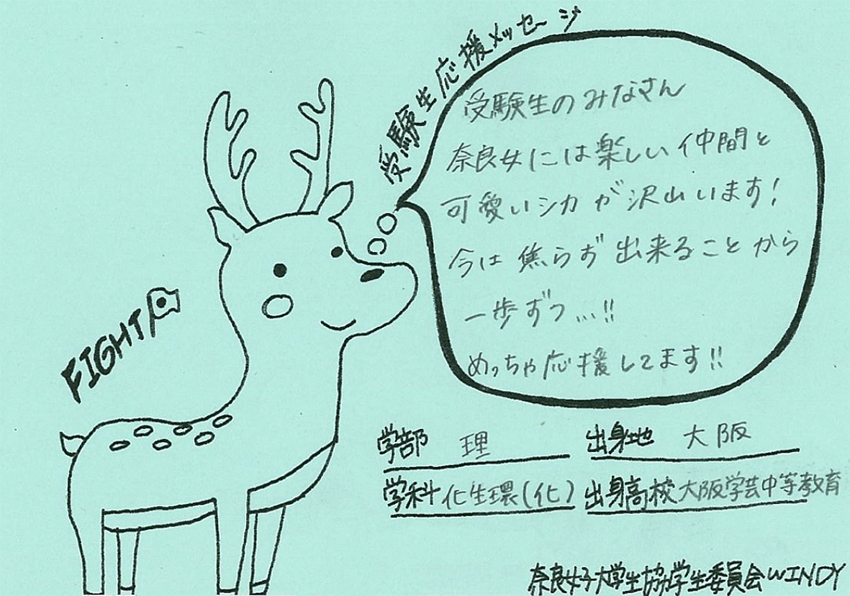 受験生応援メッセージ
受験生のみなさん
奈良女には楽しい仲間と
可愛いシカが沢山います!
今は焦らず出来ることから
一歩ずつ...!!
めっちゃ応援してます!!
FIGHT
学部 理 出身地 大阪
学科 化生環(化) 出身高校 大阪学芸中等教育
奈良女子大学生協学生委員会WINDY